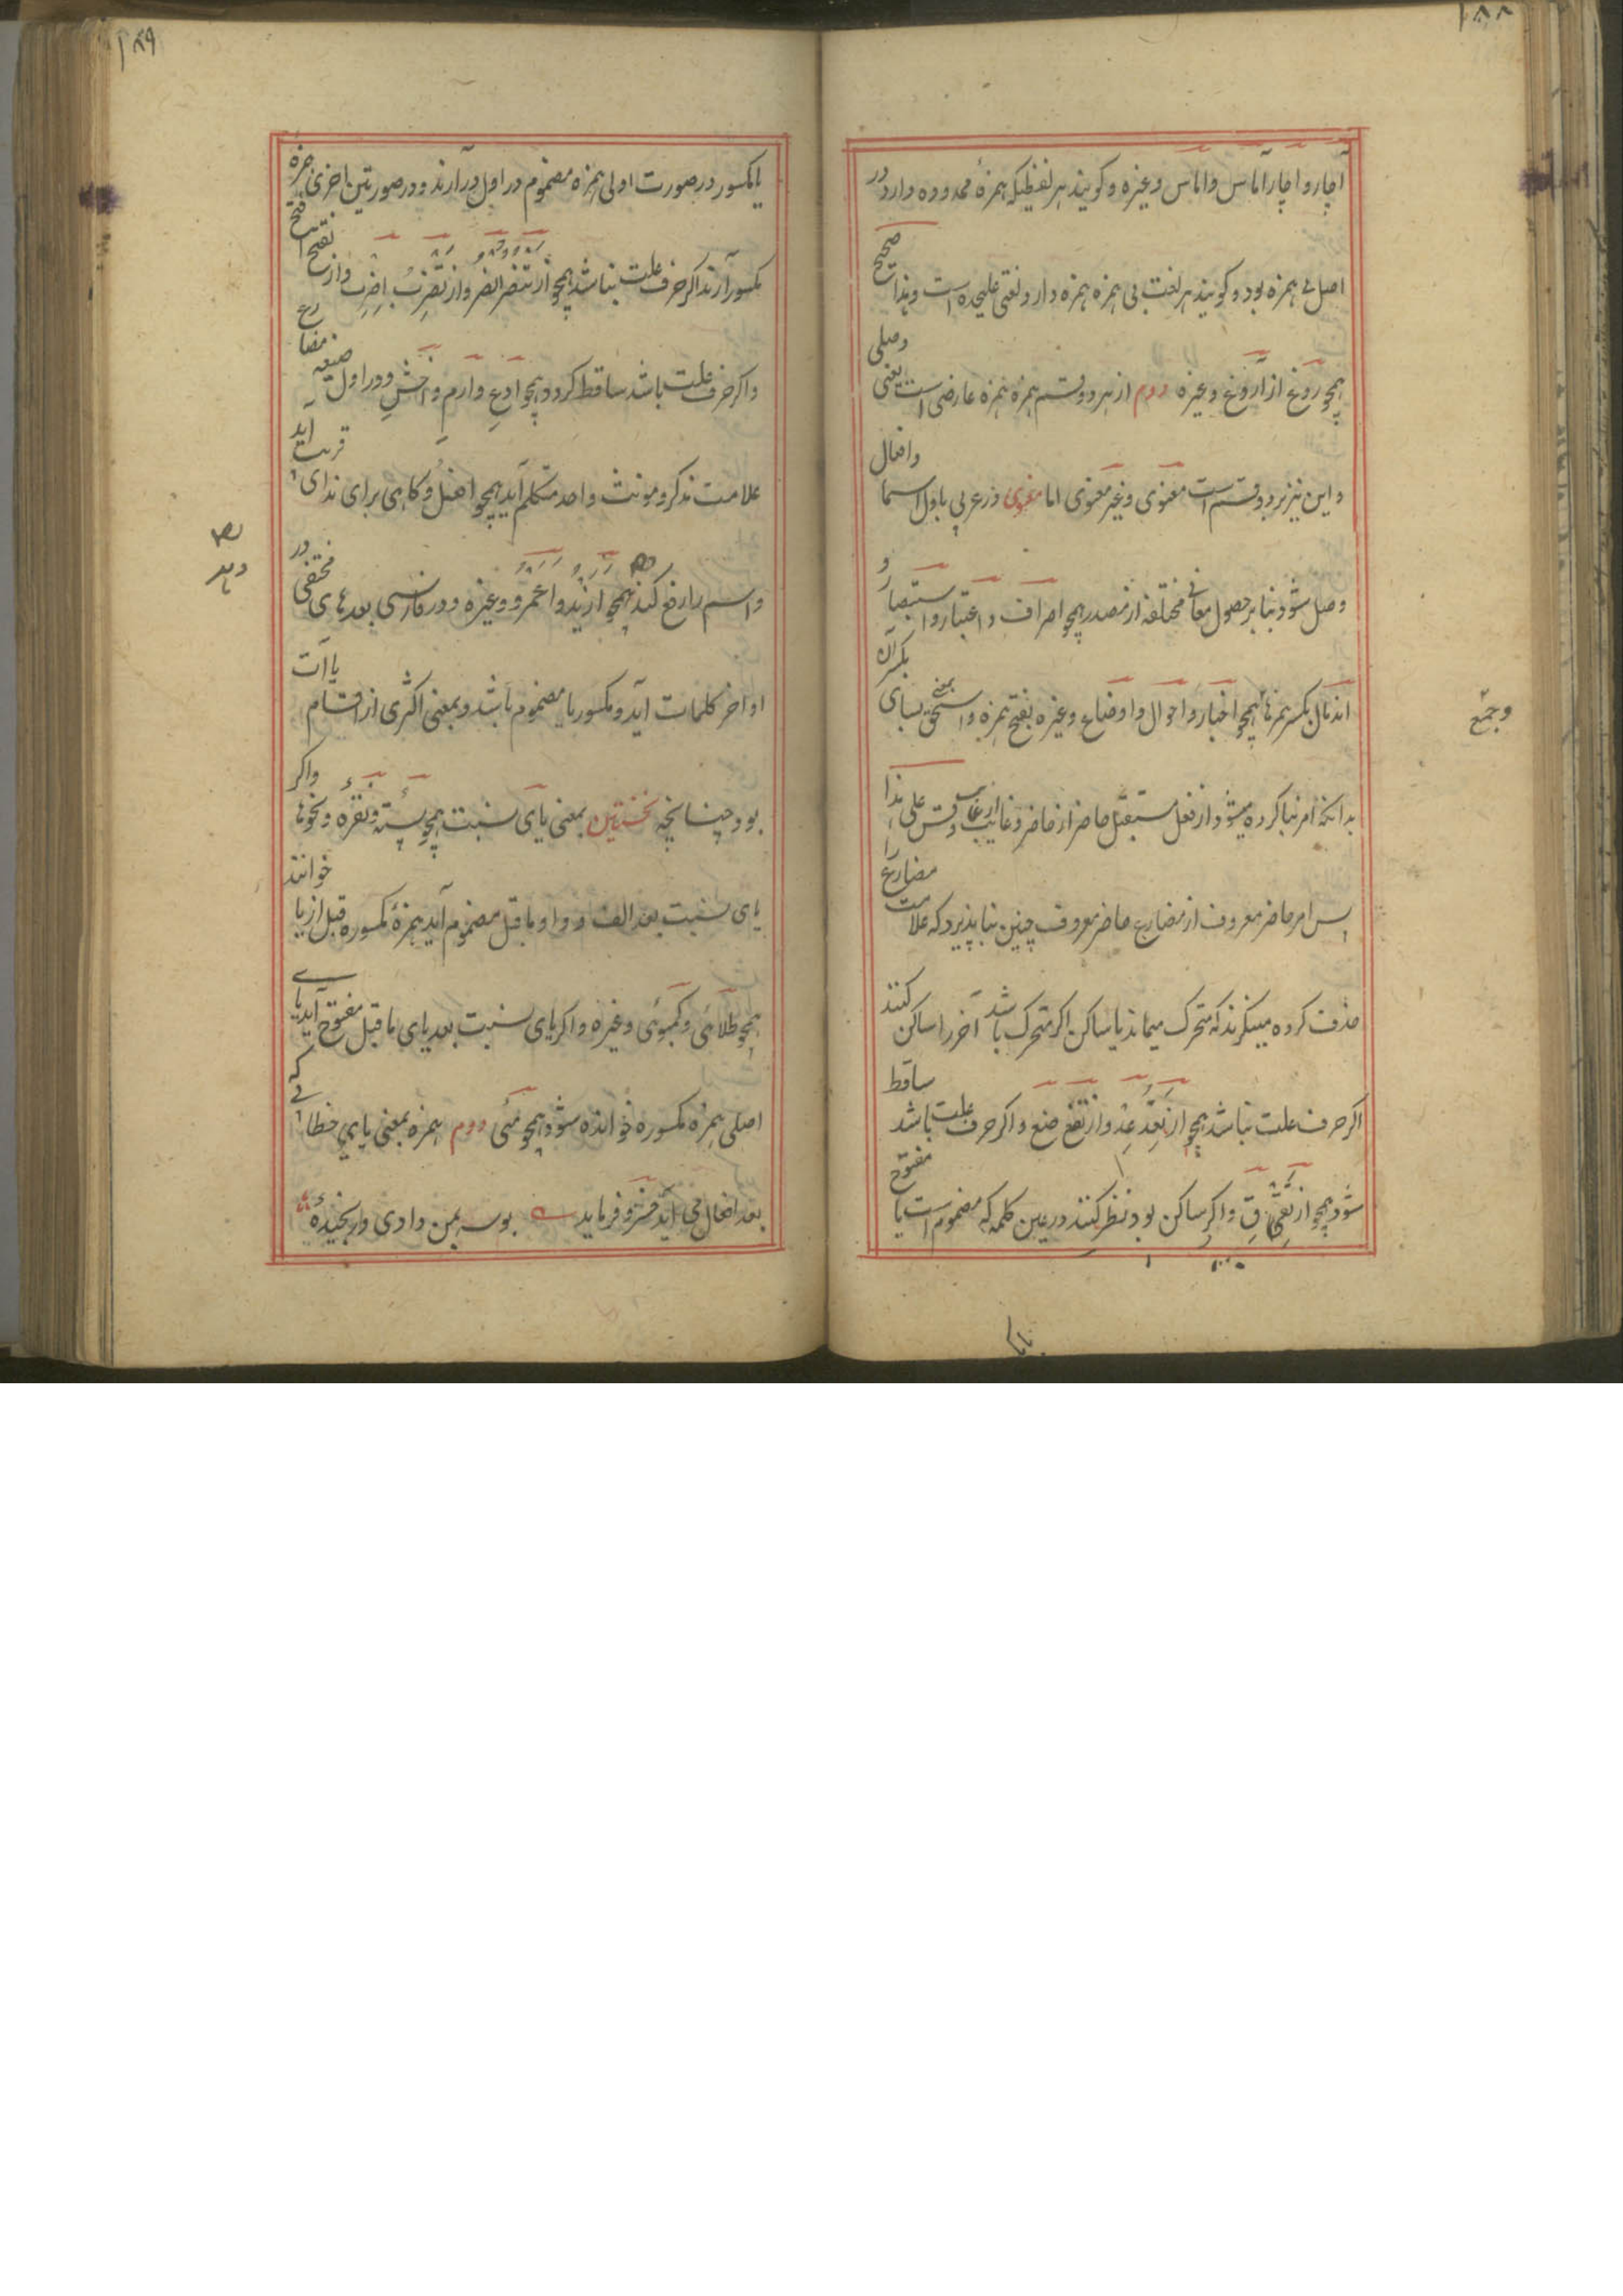 ۱۸۸
آچار و اچار آماس و اماس و غیره و کویند هر لفظیکه همزهٔ ممدوده دارد در
اصل بی همزه بود و کویند هر لغت بی همزه همزه دار و لغتی علیحده است و هذا صحیح
همچو روغ از آروغ و غیره دوم از هر دو قسم همزه همزه عارضی است یعنی وصلی
و این نیز بر دو قسم است معنوی و غیر معنوی اما معنوی در عربی باول اسما و افعال
وصل شود بنا بر حصول معانی مختلفه از مصدر همچو اصراف و اعتبار و استبصار و
اند مال بکسر همزها همچو اخبار و احوال و اوضاع و غیره بفتح همزه و اسحق بمعنی بسیار بکسر آن
وجمع
بدانکه امر بنا کرده میشود از فعل مستقبل حاضر از حاضر و غایب از غایب و قس علی هذا
پس امر حاضر معروف از مضارع حاضر معروف چنین بنا پذیرد که علامت مضارع را
حذف کرده مینکرند که متحرک میماند یا ساکن اکر متحرک باشد آخر را ساکن کنند
اکر حرف علت نباشد همچو از تعد عد و از تضع ضع و اکر حرف علت باشد ساقط
شود همچو از تقی ق و اکر ساکن بود نظر کنند در عین کلمه که مضموم است یا مفتوح
۱۸۹
یا مکسور در صورت اولی همزه مضموم در اول در آرند و در صورتین اخری همزه
مکسور آرند اکر حرف علت نباشد همچو از تنصر انصر و از تضرب اضرب و از تفتح افتح
و اکر حرف علت باشد ساقط کردد همچو ادع و ارم و اخش و در اول صیغه مضارع
علامت مذکر و مونث واحد متکلم آید همچو افعل و کاهی برای ندای قریب آید
و اسم را رفع کند همچو ازید و اعمرو و غیره و در فارسی بعد های مختفی در
اواخر کلمات آید و مکسور یا مضموم باشد و بمعنی اکثری از اقسام یا آت
بود چنانچه نخستین بمعنی یای نسبت همچو پسته و نقره و نحوها و اکر
یای نسبت بعد الف و واو ما قبل مضموم آید همزهٔ مکسوره قبل از یا خوانند
همچو طلائی و کمبوئی و غیره و اکر یای نسبت بعد یای ما قبل مفتوح آید یای
اصلی همزه مکسوره خوانده شود همچو مئی دوم همزه بمعنی یای خطاب که
بعد افعال می آید خسرو فرماید بوسه بمن دادی و رنجیدهٔ